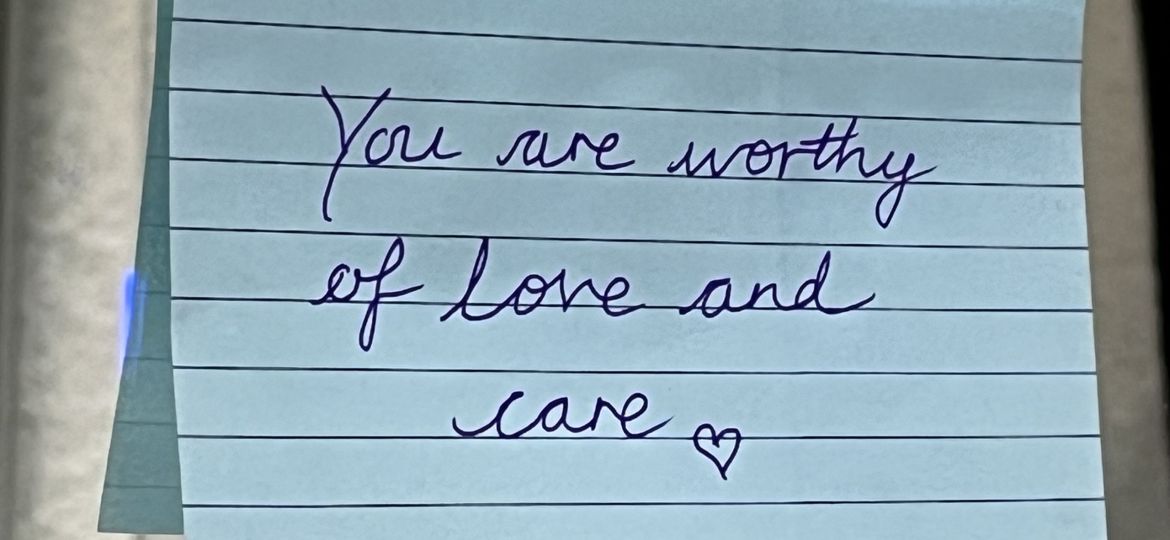 You are worthy
of love and
care ♡